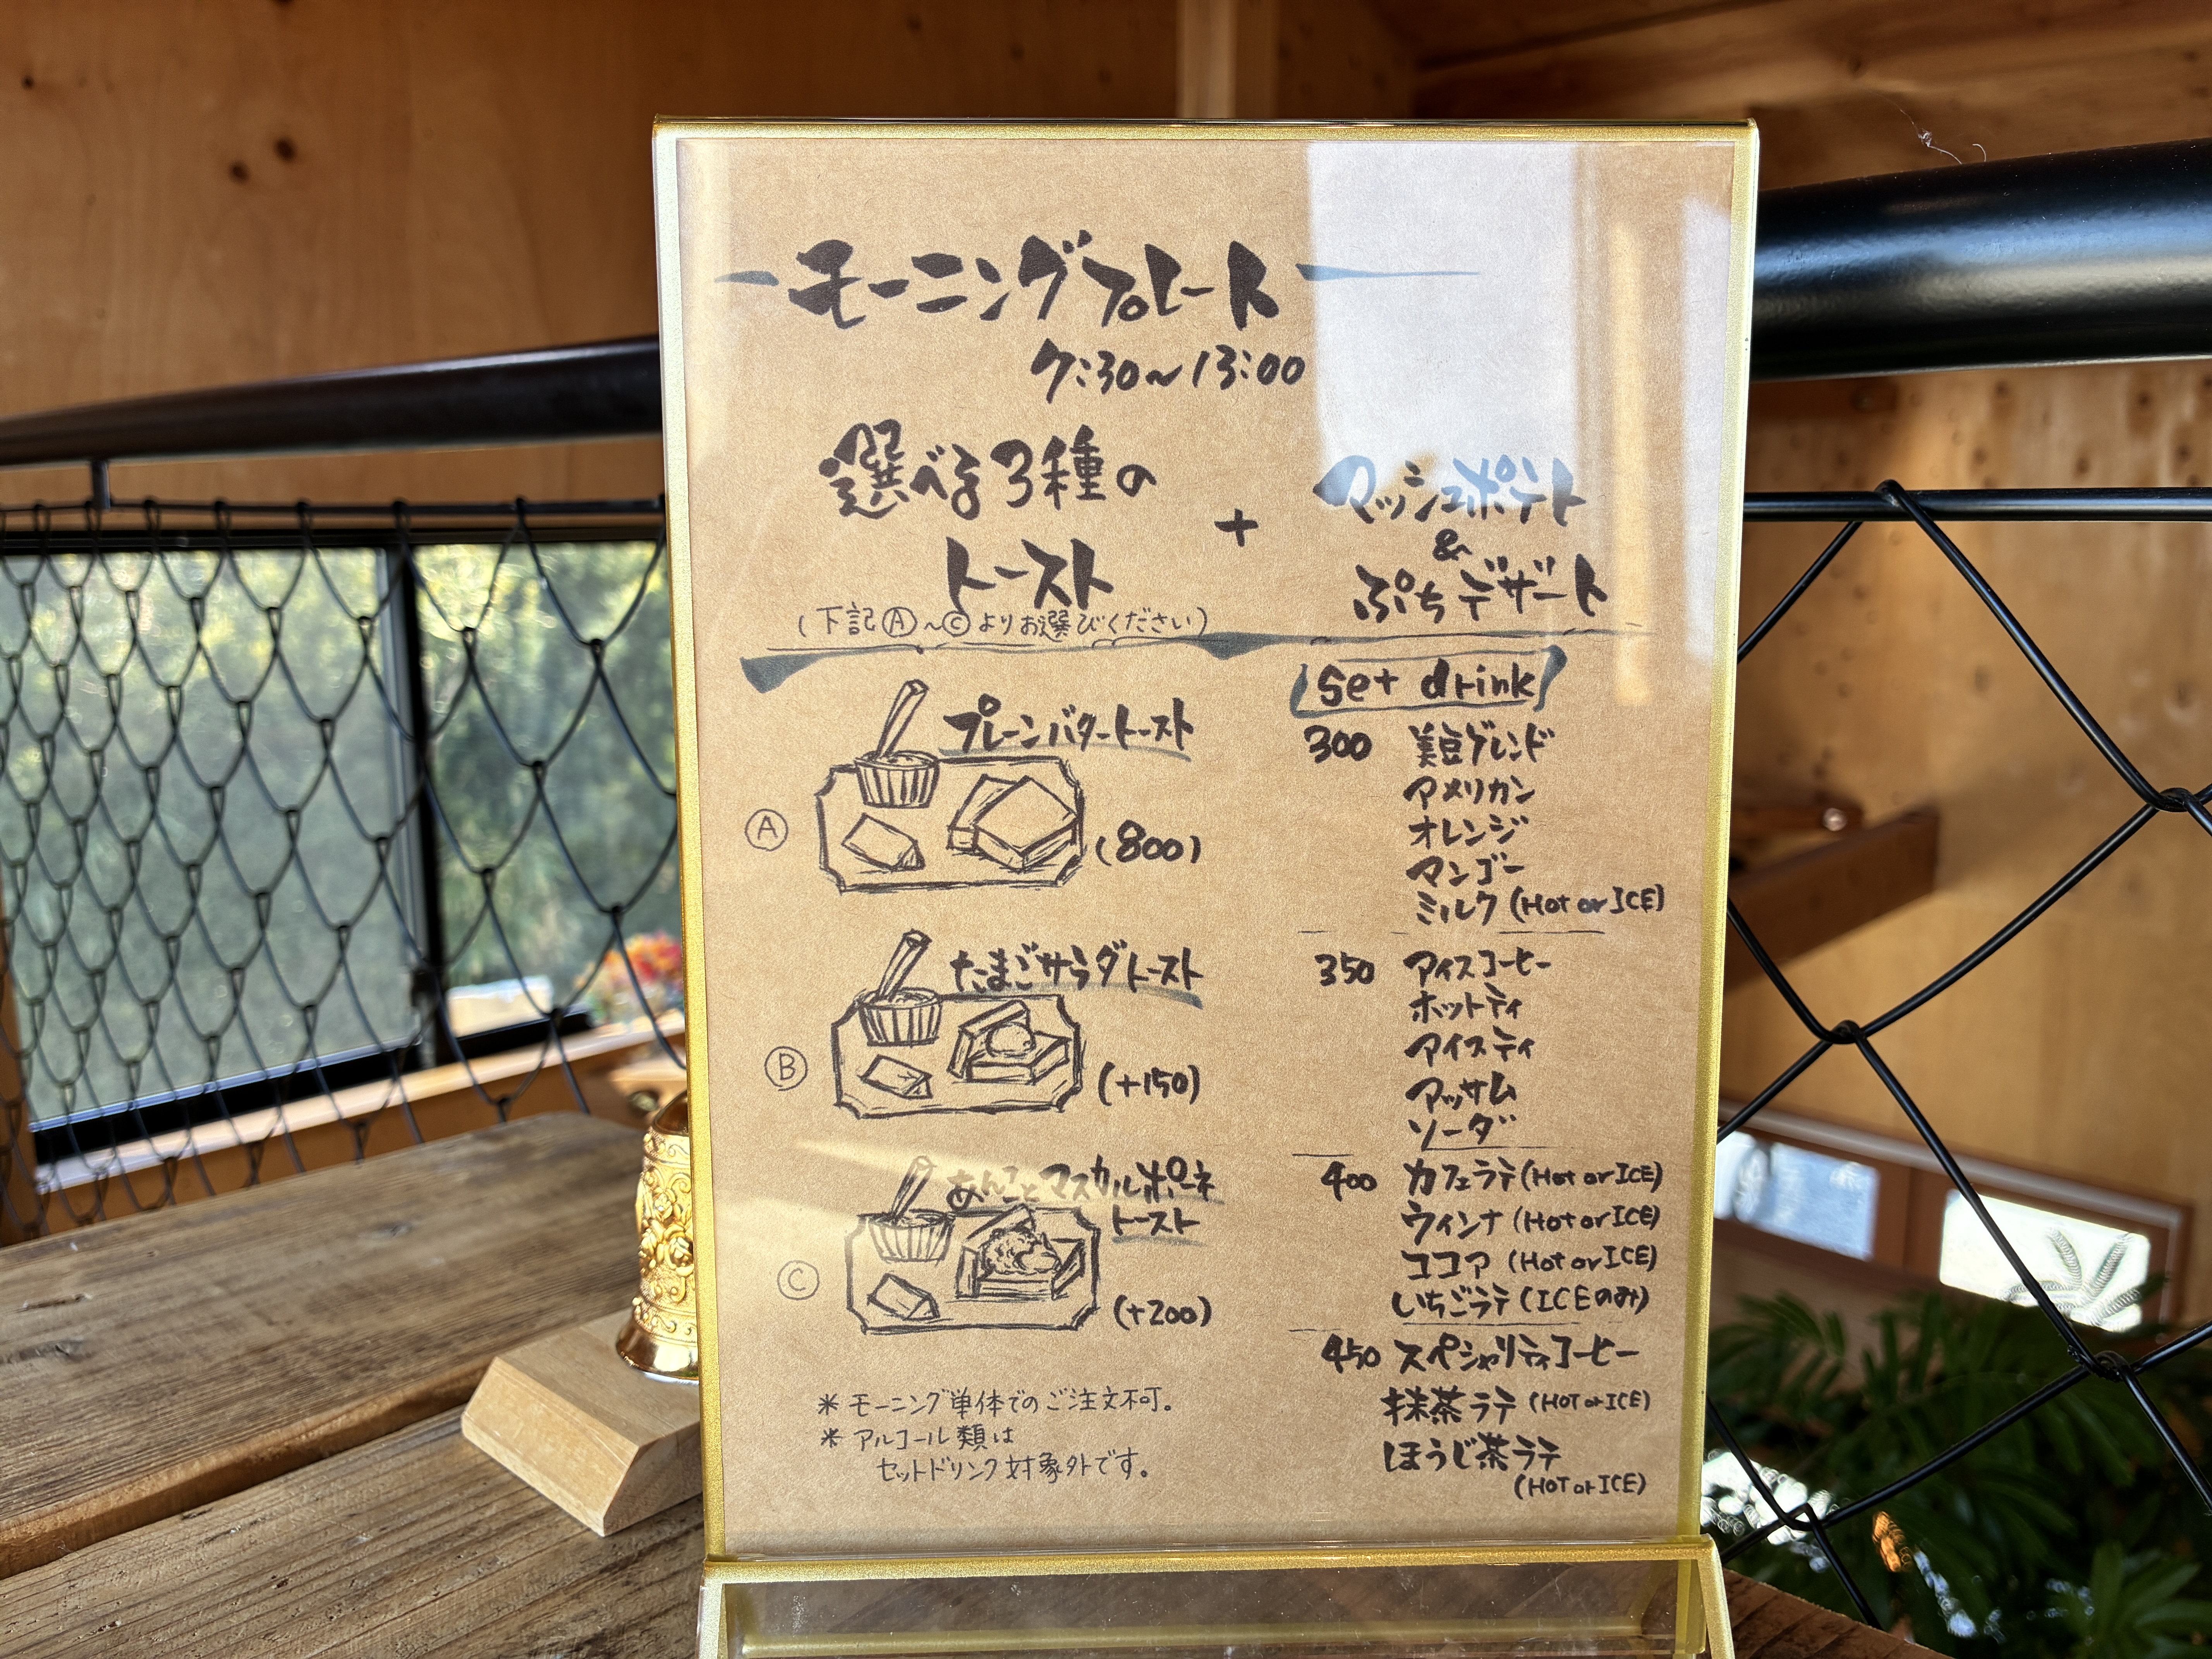 モーニングプレート
7:30~13:00
選べる3種の
トースト
(下記Ⓐ~Ⓒよりお選びください)
+
マッシュポテト
&
ぷちデザート
プレーンバタートースト
Ⓐ
(800)
たまごサラダトースト
Ⓑ
(+150)
あんことマスカルポーネ
トースト
Ⓒ
(+200)
*モーニング単体でのご注文不可。
*アルコール類は
セットドリンク対象外です。
set drink
300 美豆ブレンド
アメリカン
オレンジ
マンゴー
ミルク(Hot or ICE)
350 アイスコーヒー
ホットティ
アイスティ
アッサム
ソーダ
400 カフェラテ(Hot or ICE)
ウィンナ(Hot or ICE)
ココア(Hot or ICE)
いちごラテ(ICEのみ)
450 スペシャリティコーヒー
抹茶ラテ(HOT or ICE)
ほうじ茶ラテ
(HOT or ICE)